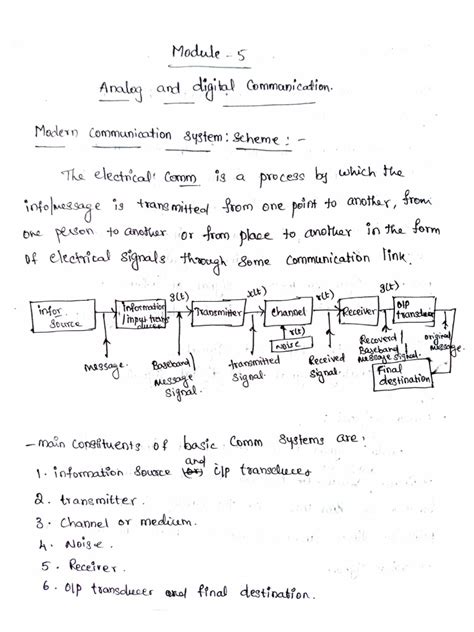 Module - 5
Analog and digital Communication.
Modern Communication System: Scheme: -
The electrical Comm is a process by which the
info/message is transmitted from one point to another, from
one person to another or from place to another in the form
of electrical signals through some communication link.
g(t) x(t) r(t) g(t)
infor source
Information /input trans ducer
Transmitter
Channel
Receiver
O/P transducer
r(t)
Noise
message
Baseband/ message Signal.
transmitted Signal.
Received Signal.
Recoverd/ Baseband/ message Signal.
original message.
Final destination
- main Constituents of basic Comm systems are:
1. information Source and (or) i/p transducer
2. transmitter.
3. Channel or medium.
4. Noise.
5. Receiver.
6. O/p transducer and final destination.